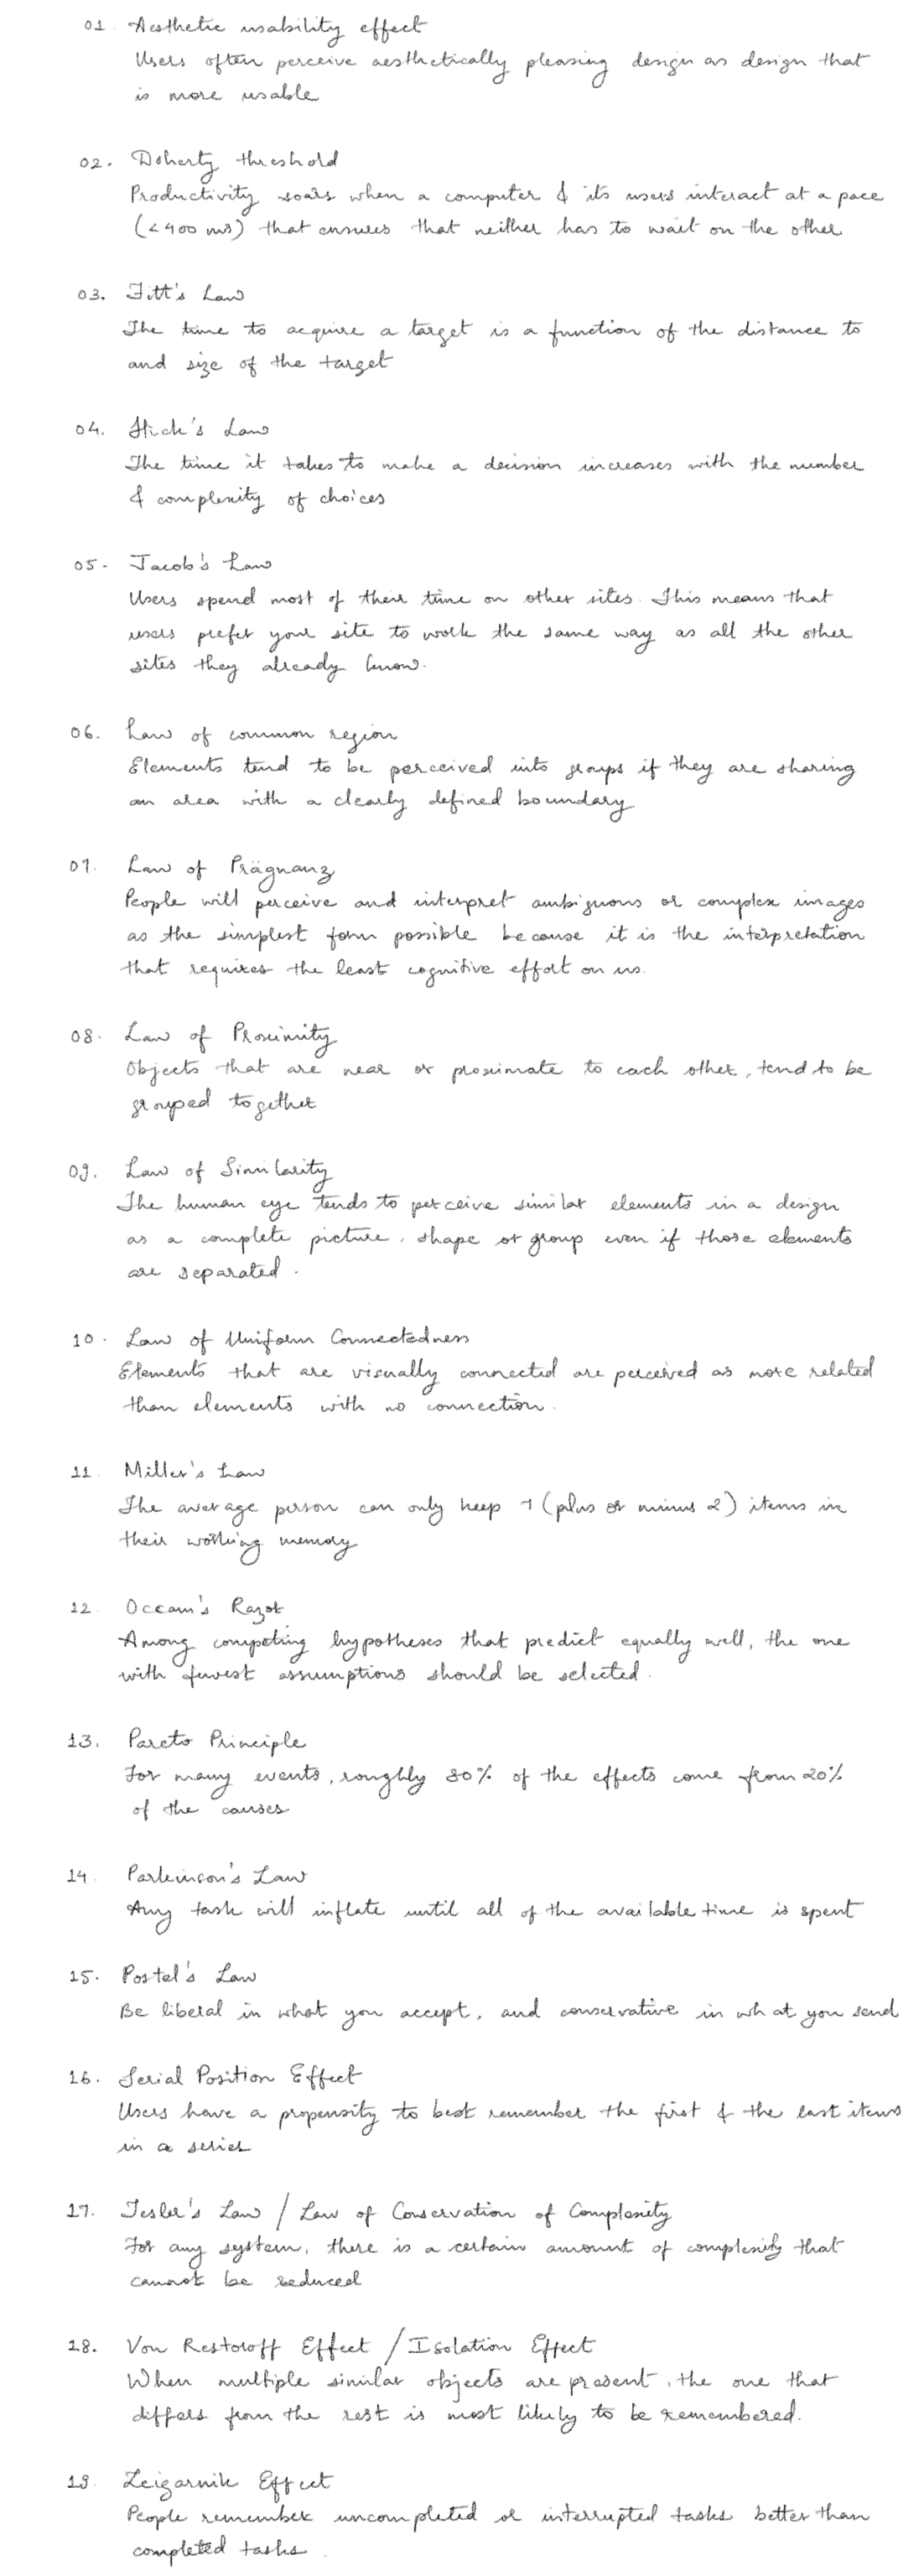 01. Aesthetic usability effect
Users often perceive aesthetically pleasing design as design that
is more usable
02. Doherty threshold
Productivity soars when a computer & its users interact at a pace
(<400 ms) that ensures that neither has to wait on the other.
03. Fitt's Law
The time to acquire a target is a function of the distance to
and size of the target
04. Hick's Law
The time it takes to make a decision increases with the number
& complexity of choices
05. Jacob's Law
Users spend most of their time on other sites. This means that
users prefer your site to work the same way as all the other
sites they already know.
06. Law of common region
Elements tend to be perceived into groups if they are sharing
an area with a clearly defined boundary
07. Law of Prägnanz
People will perceive and interpret ambiguous or complex images
as the simplest form possible because it is the interpretation
that requires the least cognitive effort on us.
08. Law of Proximity
Objects that are near or proximate to each other, tend to be
grouped together
09. Law of Similarity
The human eye tends to perceive similar elements in a design
as a complete picture, shape or group even if those elements
are separated.
10. Law of Uniform Connectedness
Elements that are visually connected are perceived as more related
than elements with no connection.
11. Miller's Law
The average person can only keep 7 (plus or minus 2) items in
their working memory
12. Occam's Razor
Among competing hypotheses that predict equally well, the one
with fewest assumptions should be selected.
13. Pareto Principle
For many events, roughly 80% of the effects come from 20%
of the causes
14. Parkinson's Law
Any task will inflate until all of the available time is spent
15. Postel's Law
Be liberal in what you accept, and conservative in what you send
16. Serial Position Effect
Users have a propensity to best remember the first & the last items
in a series
17. Tesler's Law / Law of Conservation of Complexity
For any system, there is a certain amount of complexity that
cannot be reduced
18. Von Restoroff Effect / Isolation Effect
When multiple similar objects are present, the one that
differs from the rest is most likely to be remembered.
19. Zeigarnik Effect
People remember uncompleted or interrupted tasks better than
completed tasks.